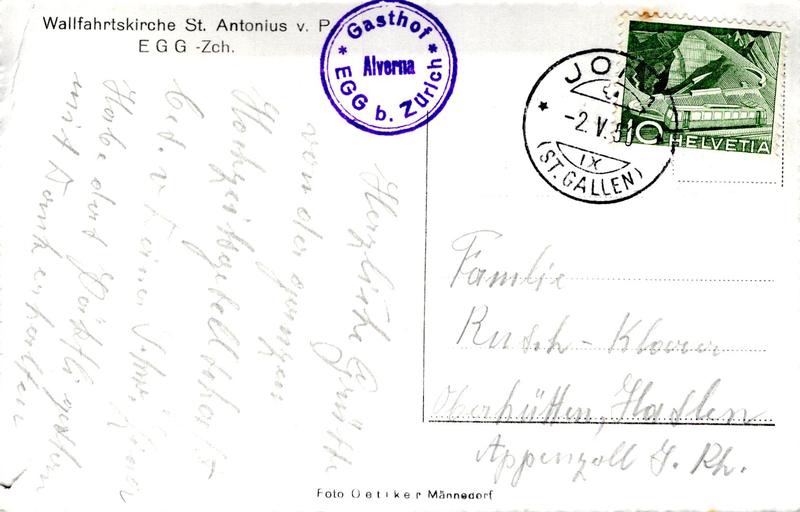 Wallfahrtskirche St. Antonius v. P
EGG -Zch.
Gasthof
Alverna
EGG b. Zürich
JON
-2.V.50
IX
(ST. GALLEN)
10
HELVETIA
Herzliche Grüsse
von der ganzen
Hochzeitsgesellschaft
Habe das gestern
mit Dank erhalten
Familie
Rusch-
Oberhütten, Haslen
Appenzell J. Rh.
Foto Oetiker Männedorf